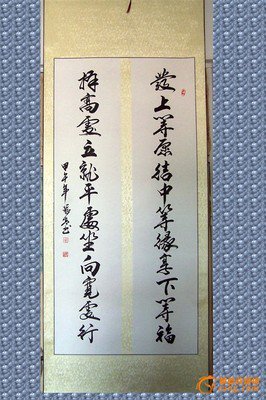 發上等愿結中等緣享下等福
擇高處立就平處坐向寬處行
甲午年